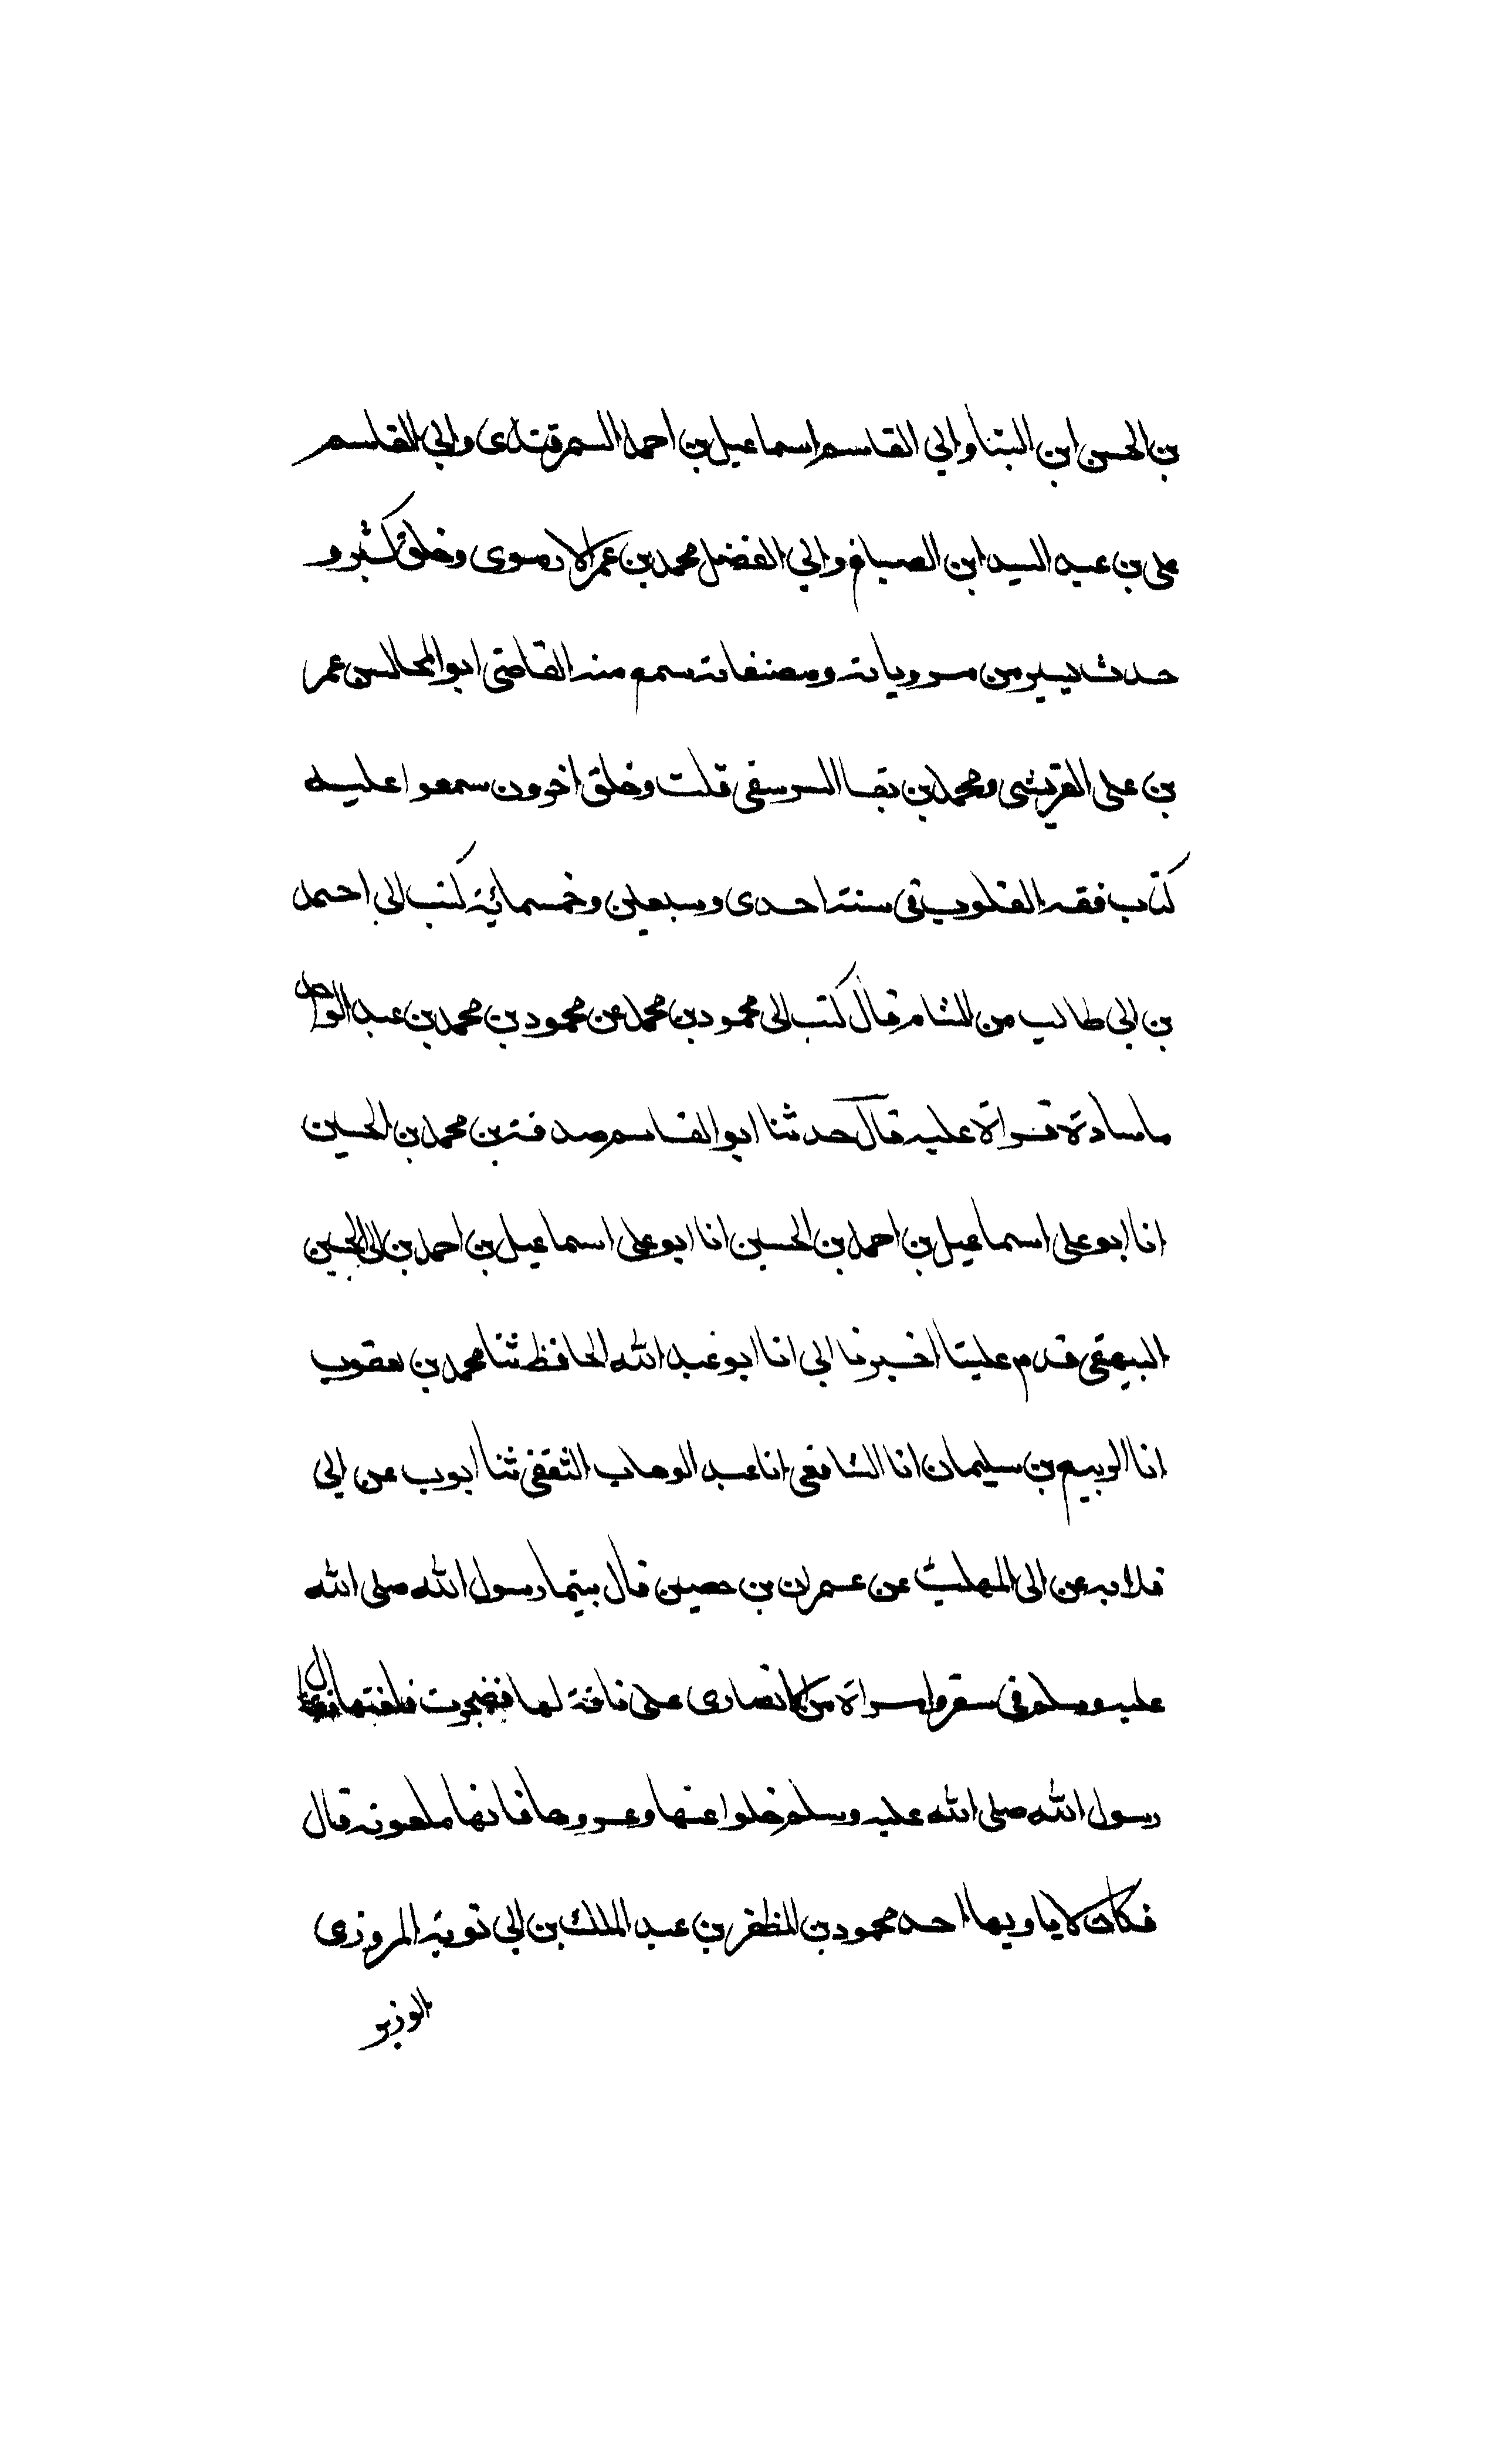 بن الحسن ابن البنا وابي القاسم اسماعيل بن احمد السمرقندى وابي القاسم
على بن عبد السيد ابن الصباغ وابي الفضل محمد بن عمر الارموى وخلق كثير و
حدث بيسير من مروياته ومصنفاته سمع منه القاضى ابو المحاسن عمر
بن على القريشى ومحمد بن بقا السرسفى قلت وخلق اخرون سمعوا عليه
كتاب فقه القلوب فى سنة احدى وسبعين وخمسمائة كتب الى احمد
بن ابى طالب من الشام قال كتب الى محمود بن محمد عن محمود بن محمد بن عبد الواحد
ماسادة قراة عليه قال حدثنا ابو القاسم صدقة بن محمد بن الحسين
انا ابو على اسماعيل بن احمد بن الحسين انا ابو على اسماعيل بن احمد بن الحسين
البيهقى قدم علينا اخبرنا ابى انا ابو عبد الله الحافظ ثنا محمد بن يعقوب
انا الربيع بن سليمان انا الشافعى انا عبد الوهاب الثقفى ثنا ايوب عن ابى
قلابه عن ابى المهلب عن عمران بن حصين قال بينما رسول الله صلى الله
عليه وسلم فى سفر وامراة من الانصارى على ناقة لها فضجرت فلعنتها فقال
رسول الله صلى الله عليه وسلم خلوا عنها وعروها فانها ملعونة قال
فكان لا ياويها احد محمود بن المظفر بن عبد الملك بن ابى توبة المروزى
الوزير